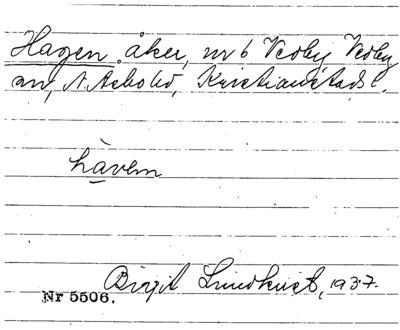 Hagen åker, nr 6 Vedby Vedby
sn, N. Åsbo hd, Kristianstads l.
hàvem
Birgit Lundkvist, 1937.
Nr 5506.